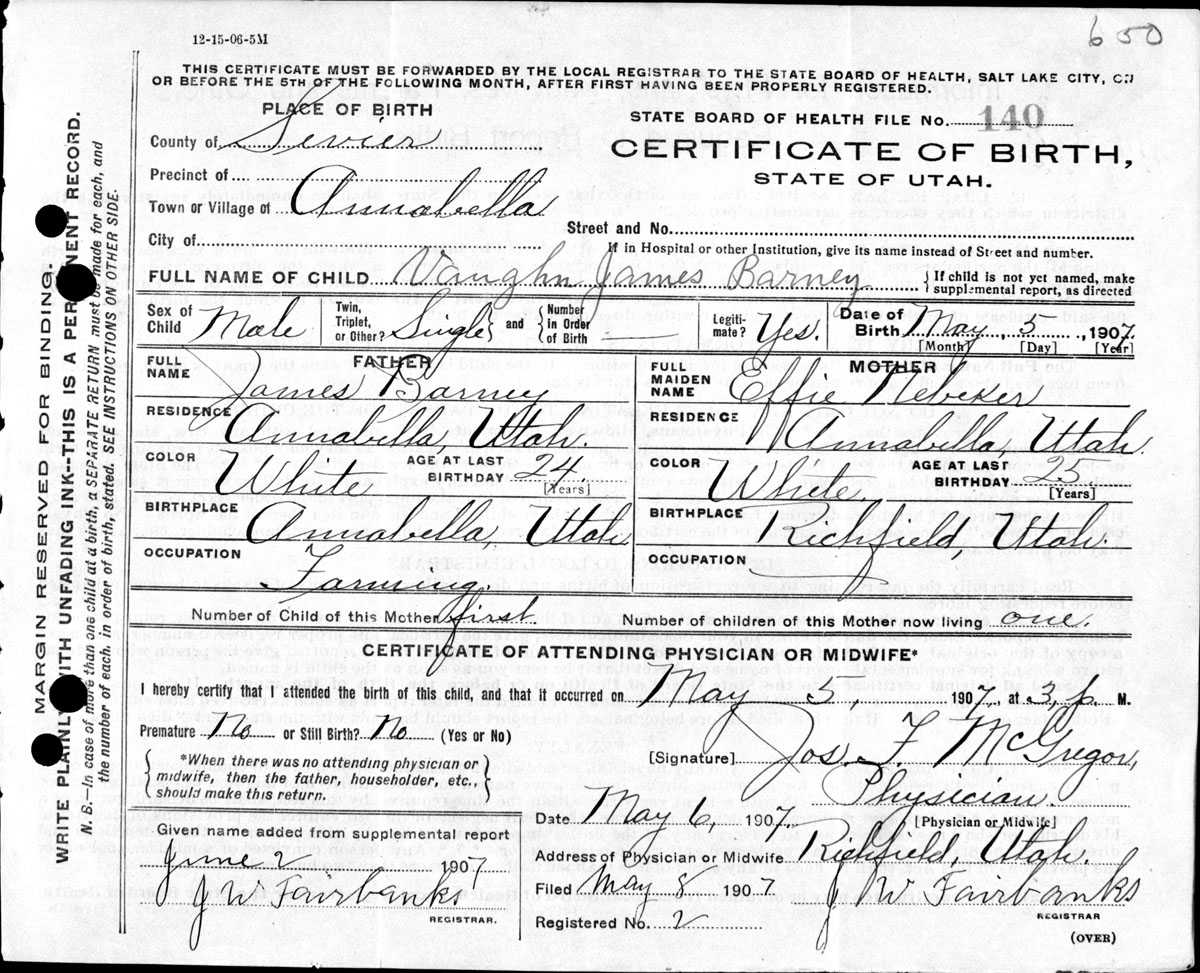 650
12-15-06-5M
THIS CERTIFICATE MUST BE FORWARDED BY THE LOCAL REGISTRAR TO THE STATE BOARD OF HEALTH, SALT LAKE CITY, ON
OR BEFORE THE 5TH OF THE FOLLOWING MONTH, AFTER FIRST HAVING BEEN PROPERLY REGISTERED.
PLACE OF BIRTH
STATE BOARD OF HEALTH FILE No. 140
County of Sevier
CERTIFICATE OF BIRTH,
STATE OF UTAH.
Precinct of
Town or Village of Annabella
Street and No.
City of
If in Hospital or other Institution, give its name instead of Street and number.
FULL NAME OF CHILD Vaughn James Barney { If child is not yet named, make
supplemental report, as directed
Sex of Child Male Twin, Triplet, or Other? Single and { Number in Order of Birth — Legiti-mate? Yes. Date of Birth May 5, 1907.
[Month] [Day] [Year]
FATHER MOTHER
FULL NAME James Barney FULL MAIDEN NAME Effie Nebeker
RESIDENCE Annabella, Utah. RESIDENCE Annabella, Utah.
COLOR White AGE AT LAST BIRTHDAY 24 [Years] COLOR White AGE AT LAST BIRTHDAY 23 [Years]
BIRTHPLACE Annabella, Utah BIRTHPLACE Richfield, Utah.
OCCUPATION Farming. OCCUPATION
Number of Child of this Mother first. Number of children of this Mother now living one.
CERTIFICATE OF ATTENDING PHYSICIAN OR MIDWIFE*
I hereby certify that I attended the birth of this child, and that it occurred on May 5, 1907, at 3, p. M.
Premature No or Still Birth? No (Yes or No)
[Signature] Jos. F. McGregor,
Physician.
[Physician or Midwife]
{ *When there was no attending physician or
midwife, then the father, householder, etc.,
should make this return. }
Date May 6, 1907.
Given name added from supplemental report
June 2 1907
J W Fairbanks
REGISTRAR.
Address of Physician or Midwife Richfield, Utah.
Filed May 8 1907. J W Fairbanks
REGISTRAR
Registered No. 2
(OVER)
MARGIN RESERVED FOR BINDING.
WRITE PLAINLY WITH UNFADING INK--THIS IS A PERMANENT RECORD.
N. B.—In case of more than one child at a birth, a SEPARATE RETURN must be made for each, and
the number of each, in order of birth, stated. SEE INSTRUCTIONS ON OTHER SIDE.